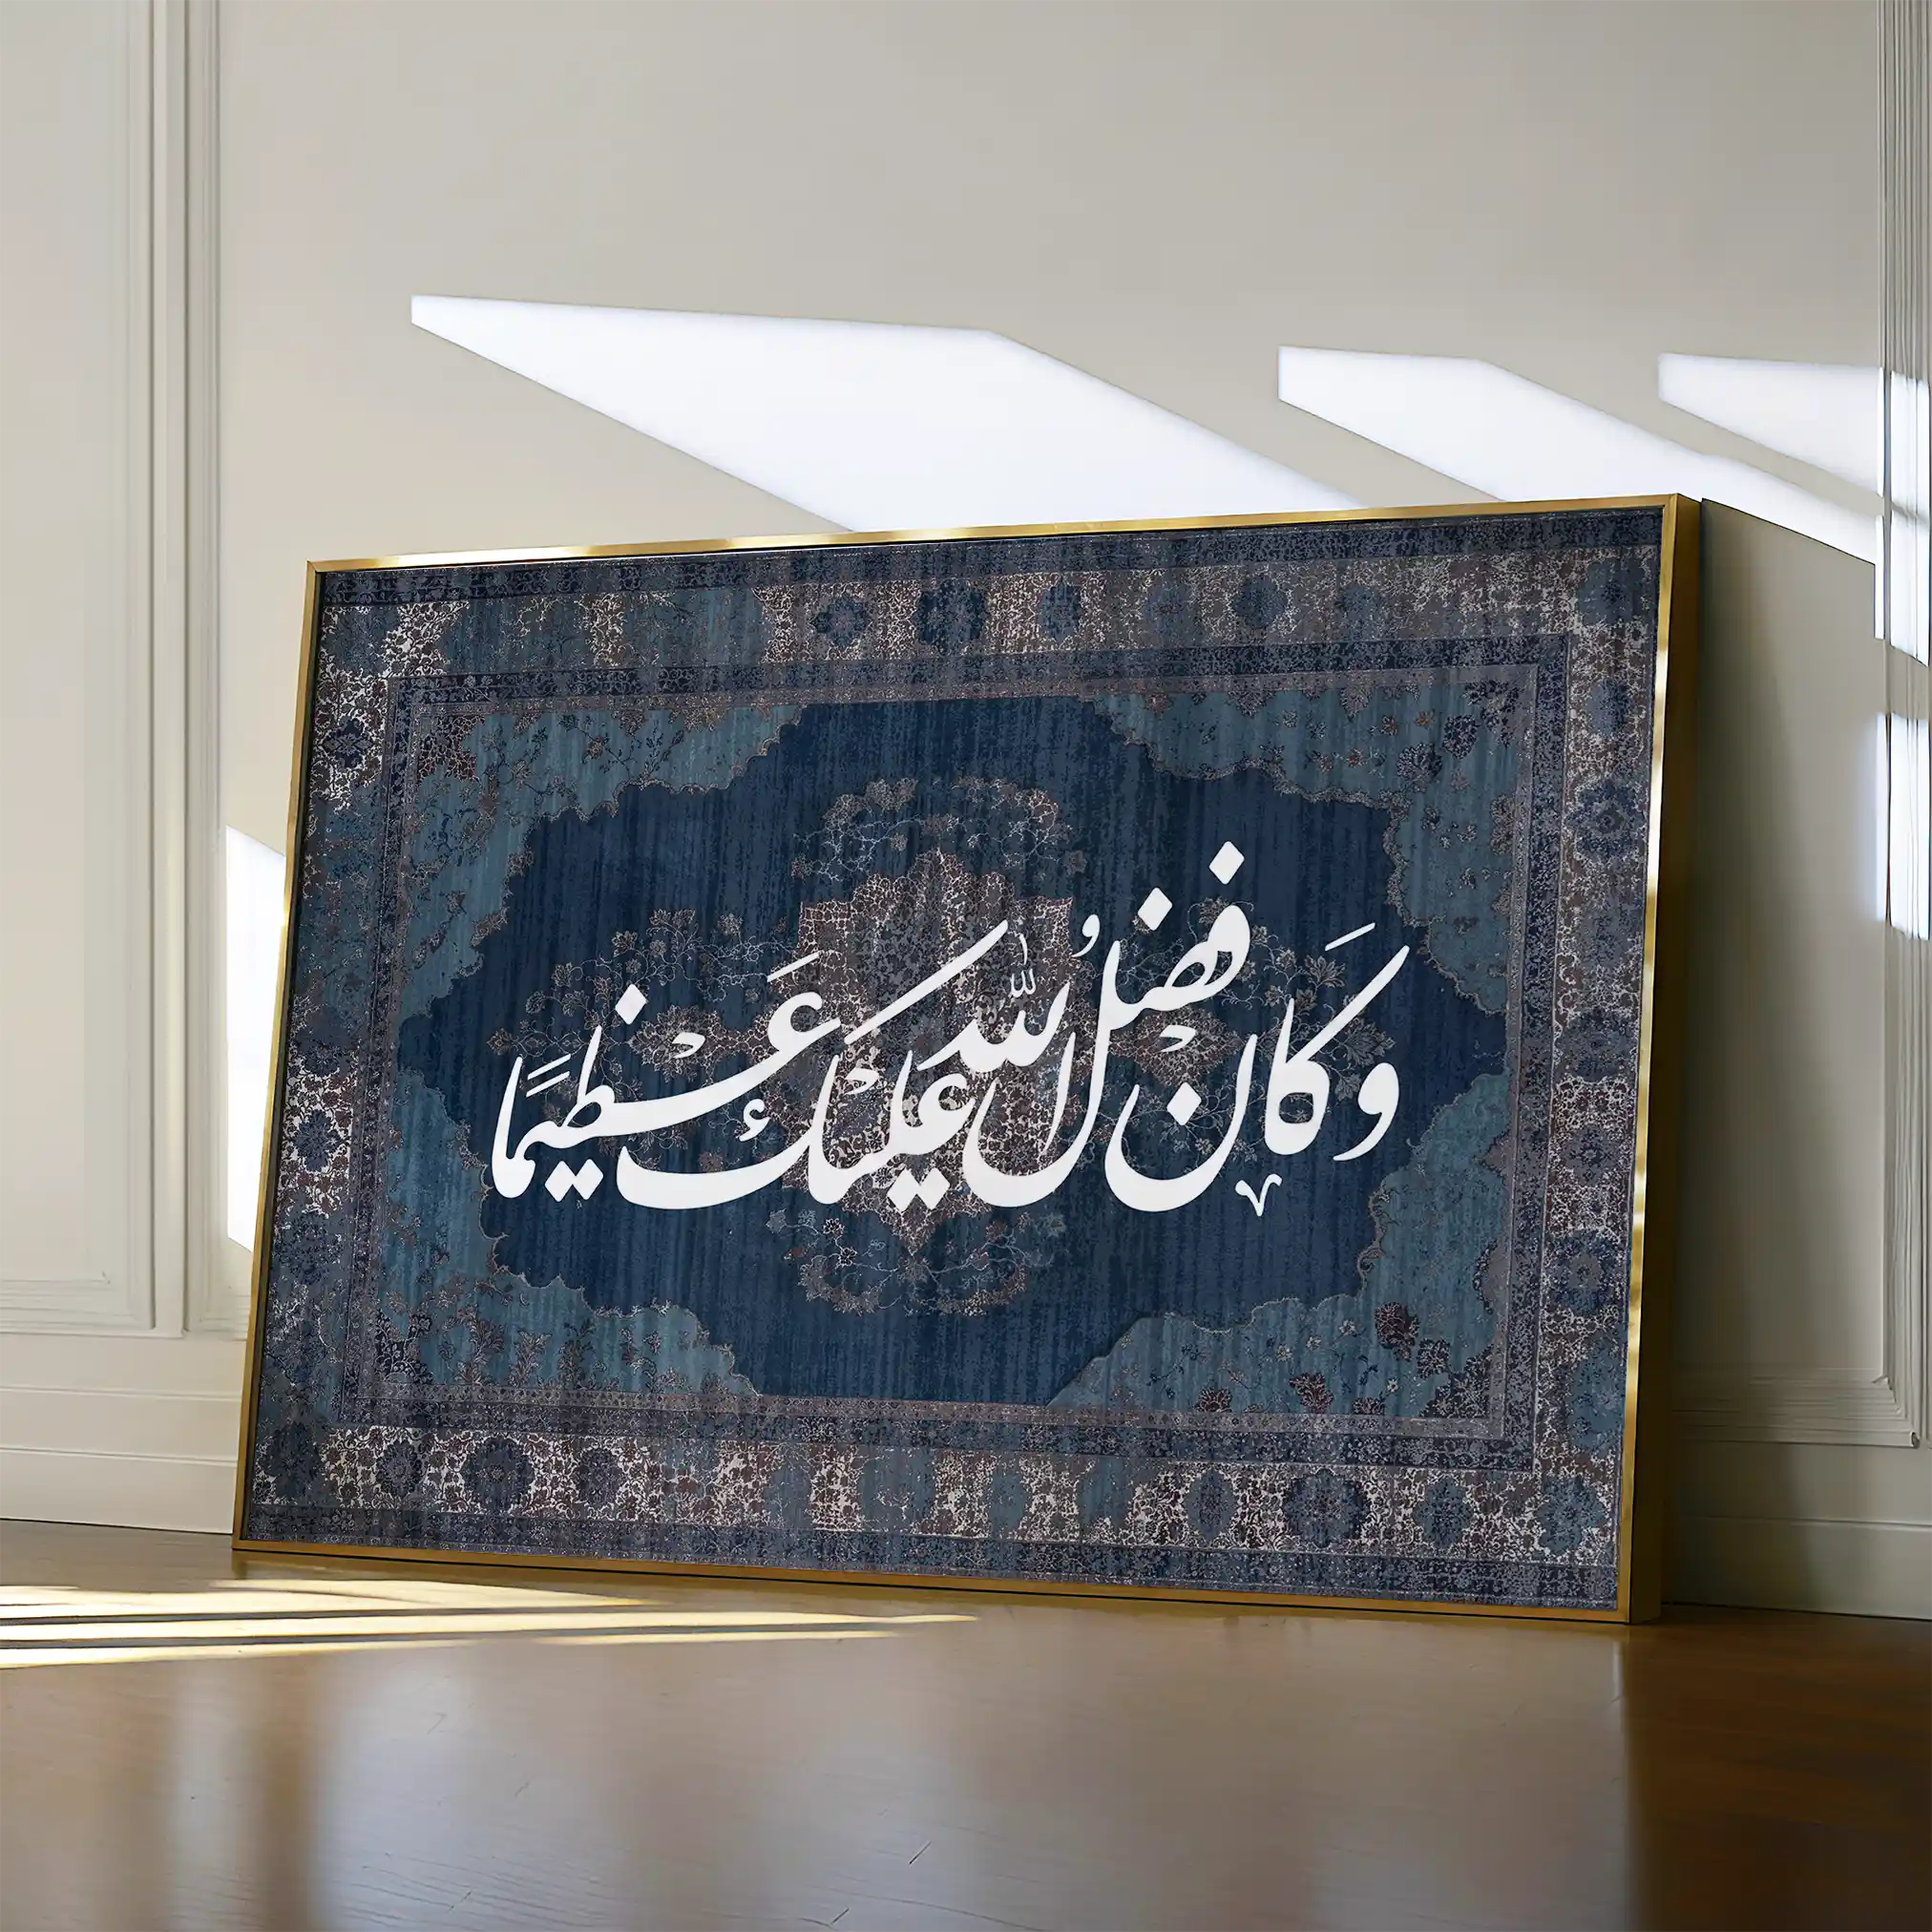 وَكَانَ فَضْلُ اللّٰهِ عَلَيْكَ عَظِيمًا